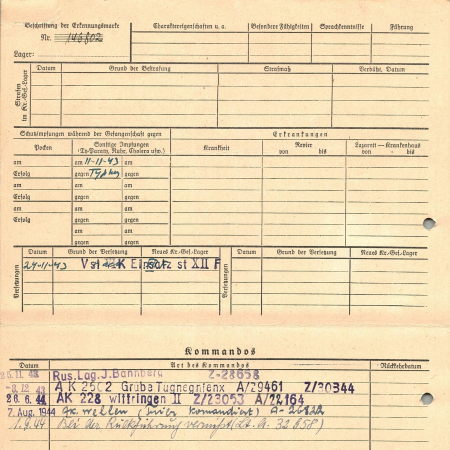 Beschriftung der Erkennungsmarke
Nr. 146802
Lager:
Charaktereigenschaften u. a.
Besondere Fähigkeiten
Sprachkenntnisse
Führung
Strafen im Kr.-Gef.-Lager
Datum
Grund der Bestrafung
Strafmaß
Verbüßt, Datum
Schutzimpfungen während der Gefangenschaft gegen
Erkrankungen
Pocken
Sonstige Impfungen
(Ty-Paraty, Ruhr, Cholera usw.)
Krankheit
Revier
von bis
Lazarett — Krankenhaus
von bis
am am 11-11-43 am
Erfolg gegen Typhus gegen
am am am
Erfolg gegen gegen
am am am
Erfolg gegen gegen
am am
gegen gegen
am am
gegen gegen
Versetzungen
Datum
Grund der Versetzung
Neues Kr.-Gef.-Lager
Versetzungen
Datum
Grund der Versetzung
Neues Kr.-Gef.-Lager
24-11-43 st XII F
Kommandos
Datum
Art des Kommandos
Rückkehrdatum
25.11.43 Rus.Lag.J. Bannberg Z-28658
-3.12 43 A K 2502 Grube A/29461 Z/30344
26.6.44 AK 228 Wittringen II Z/23053 A/28164
7. Aug. 1944
1.9.44 Bei der Rückführung vermißt (Lt. A. 32858)